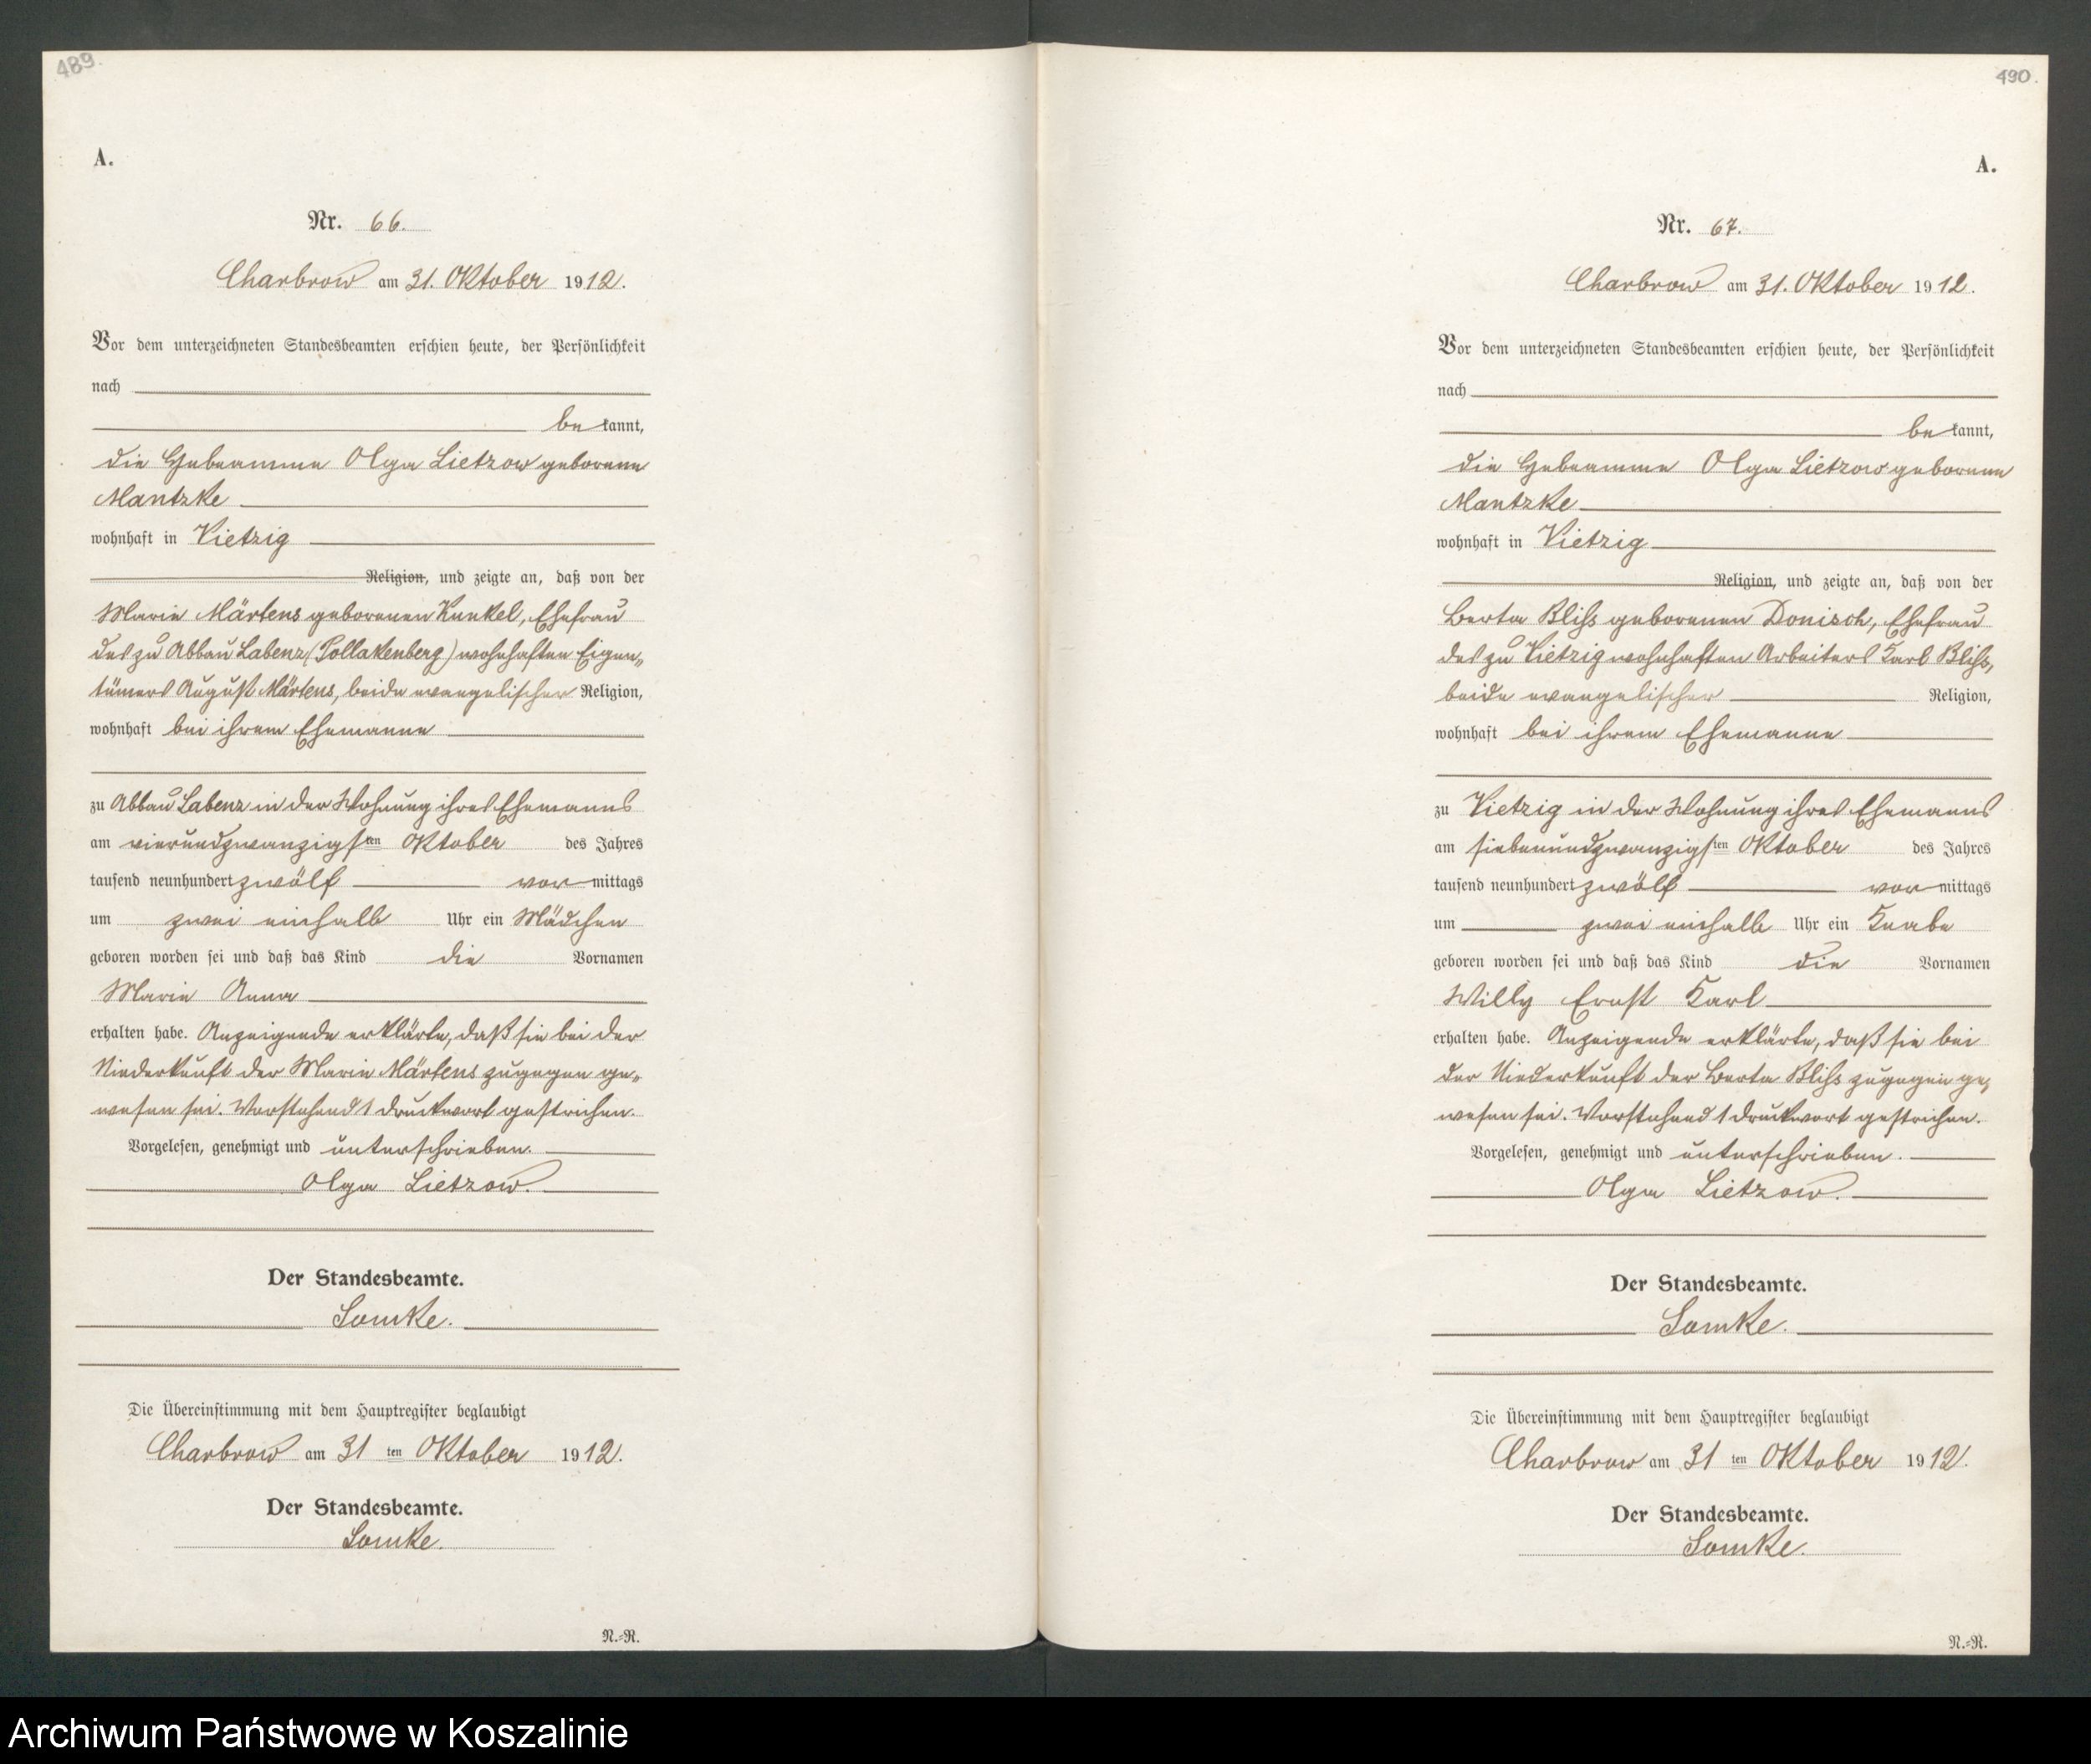 489.
A.
Nr. 66.
Charbrow am 31. Oktober 1912.
Vor dem unterzeichneten Standesbeamten erschien heute, der Persönlichkeit
nach
be kannt,
die Hebeamme Olga Lietzow geborene
Mantzke
wohnhaft in Vietzig
Religion, und zeigte an, daß von der
Marie Märtens geborenen Kunkel, Ehefrau
des zu Abbau Labenz (Pollakenberg) wohnhaften Eigen„
tümers August Märtens, beide evangelischer Religion,
wohnhaft bei ihrem Ehemanne
zu Abbau Labenz in der Wohnung ihres Ehemanns
am vierundzwanzigsten Oktober des Jahres
tausend neunhundert zwölf vor mittags
um zwei einhalb Uhr ein Mädchen
geboren worden sei und daß das Kind die Vornamen
Marie Anna
erhalten habe. Anzeigende erklärte, daß sie bei der
Niederkunft der Marie Märtens zugegen ge„
wesen sei. Vorstehend 1 Druckwort gestrichen.
Vorgelesen, genehmigt und unterschrieben.
Olga Lietzow.
Der Standesbeamte.
Lomke.
Die Übereinstimmung mit dem Hauptregister beglaubigt
Charbrow am 31 ten Oktober 1912.
Der Standesbeamte.
Lomke.
N.=R.
490.
A.
Nr. 67.
Charbrow am 31. Oktober 1912.
Vor dem unterzeichneten Standesbeamten erschien heute, der Persönlichkeit
nach
be kannt,
die Hebeamme Olga Lietzow geborene
Mantzke
wohnhaft in Vietzig
Religion, und zeigte an, daß von der
Berta Bliss geborenen Donisch, Ehefrau
des zu Vietzig wohnhaften Arbeiters Karl Bliss,
beide evangelischer Religion,
wohnhaft bei ihrem Ehemanne
zu Vietzig in der Wohnung ihres Ehemanns
am siebenundzwanzigsten Oktober des Jahres
tausend neunhundert zwölf vor mittags
um zwei einhalb Uhr ein Knabe
geboren worden sei und daß das Kind die Vornamen
Willy Ernst Karl
erhalten habe. Anzeigende erklärte, daß sie bei
der Niederkunft der Berta Bliss zugegen ge„
wesen sei. Vorstehend 1 Druckwort gestrichen.
Vorgelesen, genehmigt und unterschrieben.
Olga Lietzow.
Der Standesbeamte.
Lomke.
Die Übereinstimmung mit dem Hauptregister beglaubigt
Charbrow am 31 ten Oktober 1912.
Der Standesbeamte.
Lomke.
N.=R.
Archiwum Państwowe w Koszalinie